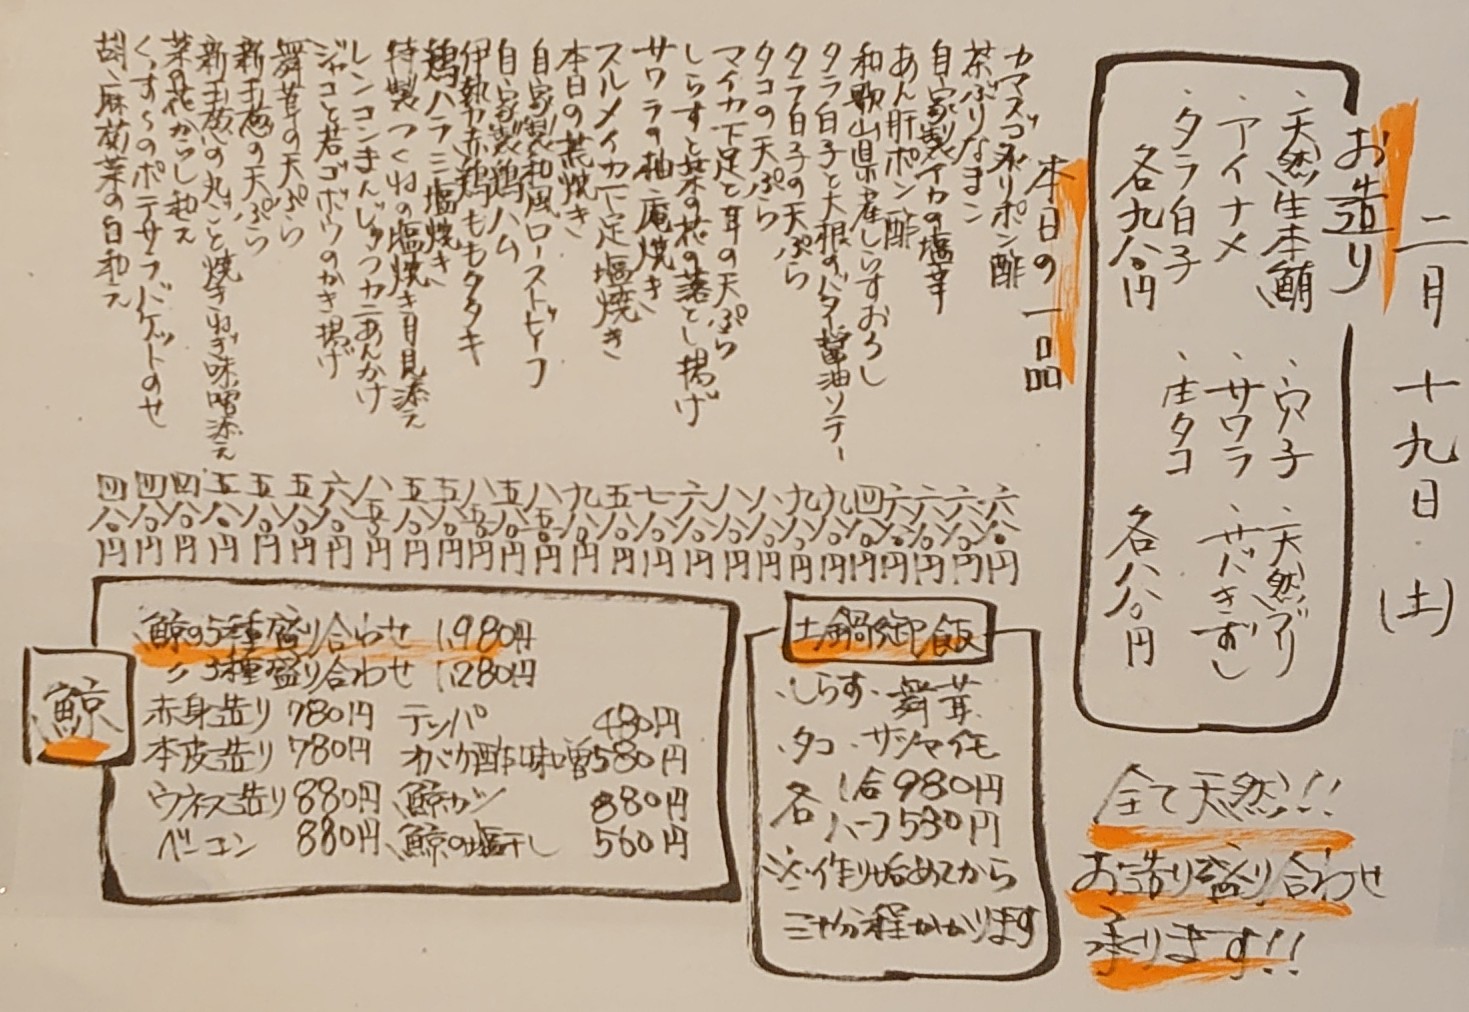 二月十九日(土)
お造り
・天然生本鮪
・アイナメ
・タラ白子
各九八〇円
・穴子
・サワラ
・生タコ
・天然ブリ
・サバきずし
各八八〇円
本日の一品
カマスゴ炙りポン酢 六八〇円
茶ぶりなまこ 六八〇円
自家製イカの塩辛 六八〇円
あん肝ポン酢 六八〇円
和歌山県産しらすおろし 四八〇円
タラ白子と大根のバター醤油ソテー 九八〇円
タラ白子の天ぷら 九八〇円
タコの天ぷら 八八〇円
マイカ下足と耳の天ぷら 八八〇円
しらすと菜の花の落とし揚げ 六八〇円
サワラの柚庵焼き 七八〇円
スルメイカ下足塩焼き 五八〇円
本日の荒焼き 九八〇円
自家製和風ローストビーフ 八五〇円
自家製鶏ハム 五八〇円
伊勢赤鶏ももタタキ 八五〇円
鶏ハラミ塩焼き 五八〇円
特製つくねの塩焼き月見添え 五八〇円
レンコンまんじゅうカニあんかけ 八五〇円
ジャコと若ゴボウのかき揚げ 六八〇円
舞茸の天ぷら 五八〇円
新玉葱の天ぷら 五八〇円
新玉葱の丸ごと焼きねぎ味噌添え 五八〇円
菜の花からし和え 四八〇円
のポテサラバゲットのせ 四八〇円
胡麻菊菜の白和え 四八〇円
鯨
鯨の5種盛り合わせ 1,980円
〃 3種盛り合わせ 1,280円
赤身造り 780円 テンパ 480円
本皮造り 780円 オバケ酢味噌 580円
ウネス造り 880円 鯨カツ 880円
ベーコン 880円 鯨の塩干し 560円
土鍋御飯
・しらす・舞茸
・タコ・サツマイモ
各 1合 980円
ハーフ 530円
※作り始めてから
三十分程かかります
全て天然!!
お造り盛り合わせ
承ります!!